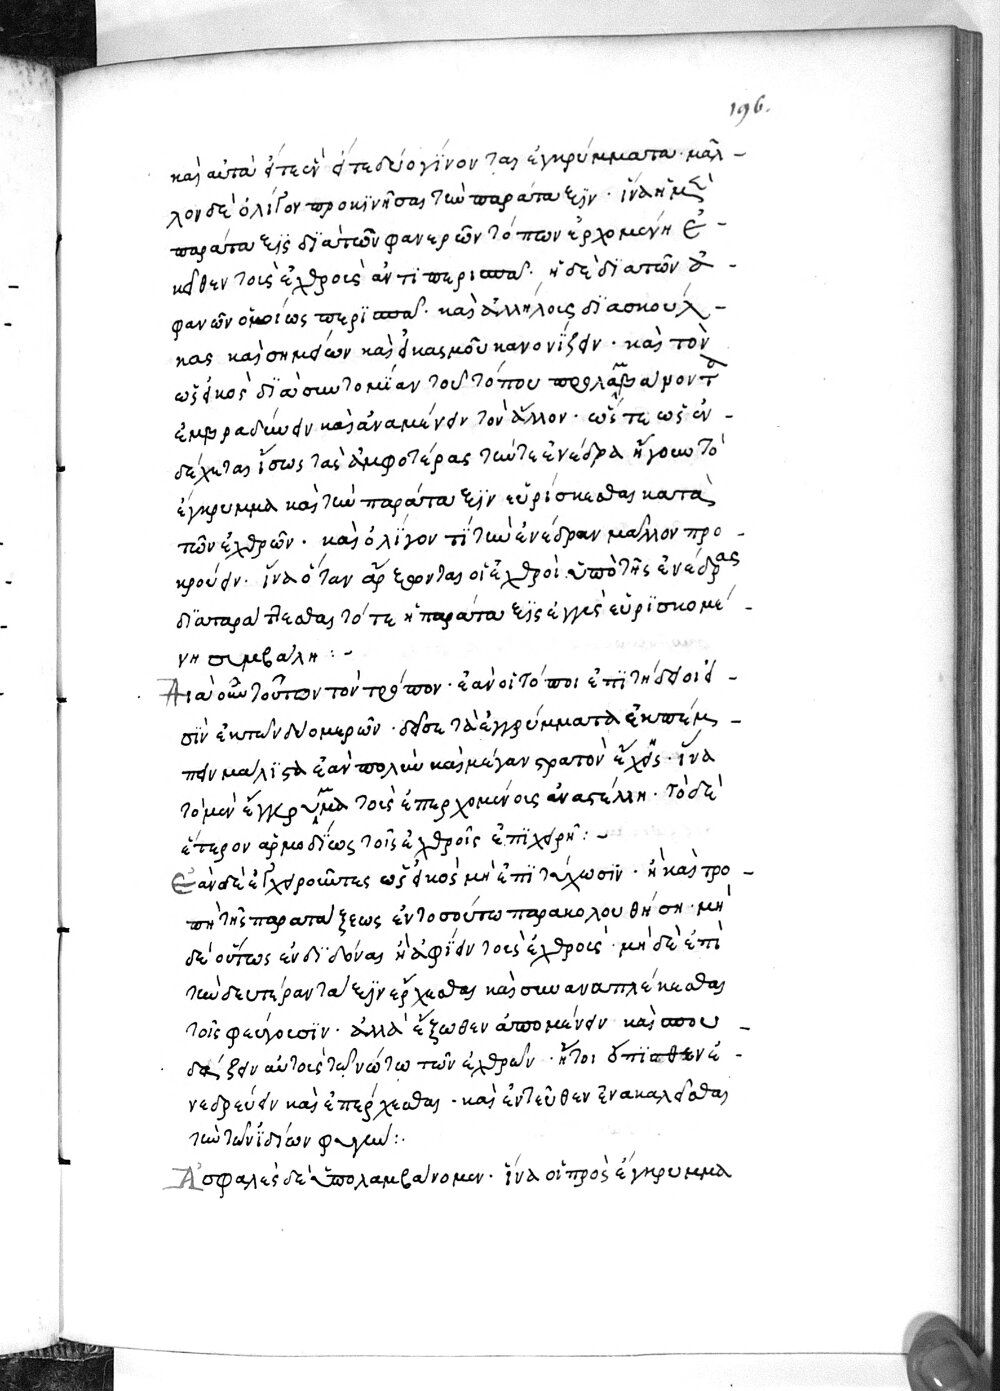 196.
καὶ αὐτὰ εἴτε ἓν εἴτε δύο γίνονται ἐγκρύμματα· μᾶλ-
λον δὲ ὀλίγον προκινῆσαι τὴν παράταξιν· ἵνα ἡ μὲν
παράταξις διὰ τῶν φανερῶν τόπων ἐρχομένη ἐ-
κεῖθεν τοῖς ἐχθροῖς ἀντιπερισπᾷ· ἡ δὲ διὰ τῶν ἀ-
φανῶν ὁμοίως περισπᾷ· καὶ ἀλλήλοις διὰ σκούλ-
κας καὶ σημείων καὶ εἰκασμοῦ κανονίζειν· καὶ τὸν
ὡς εἰκὸς διὰ συντομίαν τοῦ τόπου προλαμβάνοντα
ἐμβραδύνειν καὶ ἀναμένειν τὸν ἄλλον· ὥστε ὡς ἐν-
δέχεται ἴσως τὰς ἀμφοτέρας τήν τε ἐνέδρα ἤγουν τὸ
ἔγκρυμμα καὶ τὴν παράταξιν εὑρίσκεσθαι κατὰ
τῶν ἐχθρῶν· καὶ ὀλίγον τι τὴν ἐνέδραν μᾶλλον προ-
κρούειν· ἵνα ὅταν ἄρξωνται οἱ ἐχθροὶ ὑπὸ τῆς ἐνέδρας
διαταράττεσθαι τότε ἡ παράταξις ἐγγὺς εὑρισκομέ-
νη συμβάλη:-
Διὰ οὖν τοῦτον τὸν τρόπον· ἐὰν οἱ τόποι ἐπιτήδειοί εἰ-
σιν ἐκ τῶν δύο μερῶν· δεῖ σε τὰ ἐγκρύμματα ἐκπέμ-
πειν μάλιστα ἐὰν πολὺν καὶ μέγαν στρατὸν ἔχῃς· ἵνα
τὸ μὲν ἔγκρυμμα τοῖς ἐπερχομένοις ἀναστέλλη· τὸ δὲ
ἕτερον ἁρμοδίως τοῖς ἐχθροῖς ἐπιχειρῇ:-
Ἐὰν δὲ ἐγχειροῦντες ὡς εἰκὸς μὴ ἐπιτύχωσιν· ἢ καὶ τρο-
πὴ τῆς παρατάξεως ἐν τοσούτω παρακολουθήση· μὴ
δὲ οὕτως ἐνδιδόναι ἢ ἀφιεῖν τοῖς ἐχθροῖς· μὴ δὲ ἐπὶ
τὴν δευτέραν τάξιν ἔρχεσθαι καὶ συναναπλέκεσθαι
τοῖς φεύγουσιν· ἀλλὰ ἔξωθεν ἀπομένειν καὶ σπου-
δάζειν αὐτοῖς τῶ νώτω τῶν ἐχθρῶν· ἤτοι ὄπισθεν ἐ-
νεδρεύειν καὶ ἐπέρχεσθαι· καὶ ἐντεῦθεν ἀνακαλεῖσθαι
τὴν τῶν ἰδίων φυγήν:·
Ἀσφαλὲς δὲ ὑπολαμβάνομεν· ἵνα οἱ πρὸς ἔγκρυμμα